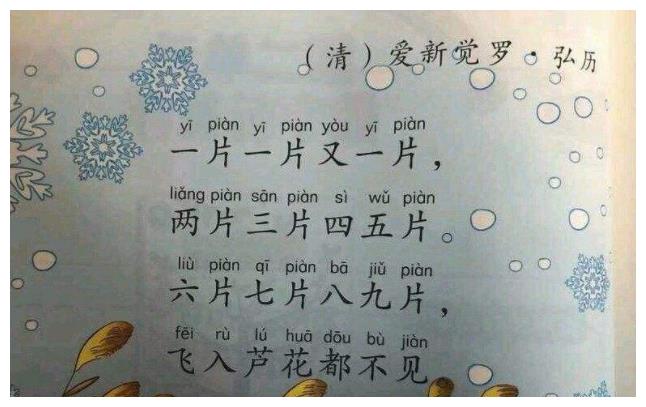 （清）爱新觉罗·弘历
yī piàn yī piàn yòu yī piàn
一片一片又一片，
liǎng piàn sān piàn sì wǔ piàn
两片三片四五片。
liù piàn qī piàn bā jiǔ piàn
六片七片八九片，
fēi rù lú huā dōu bù jiàn
飞入芦花都不见